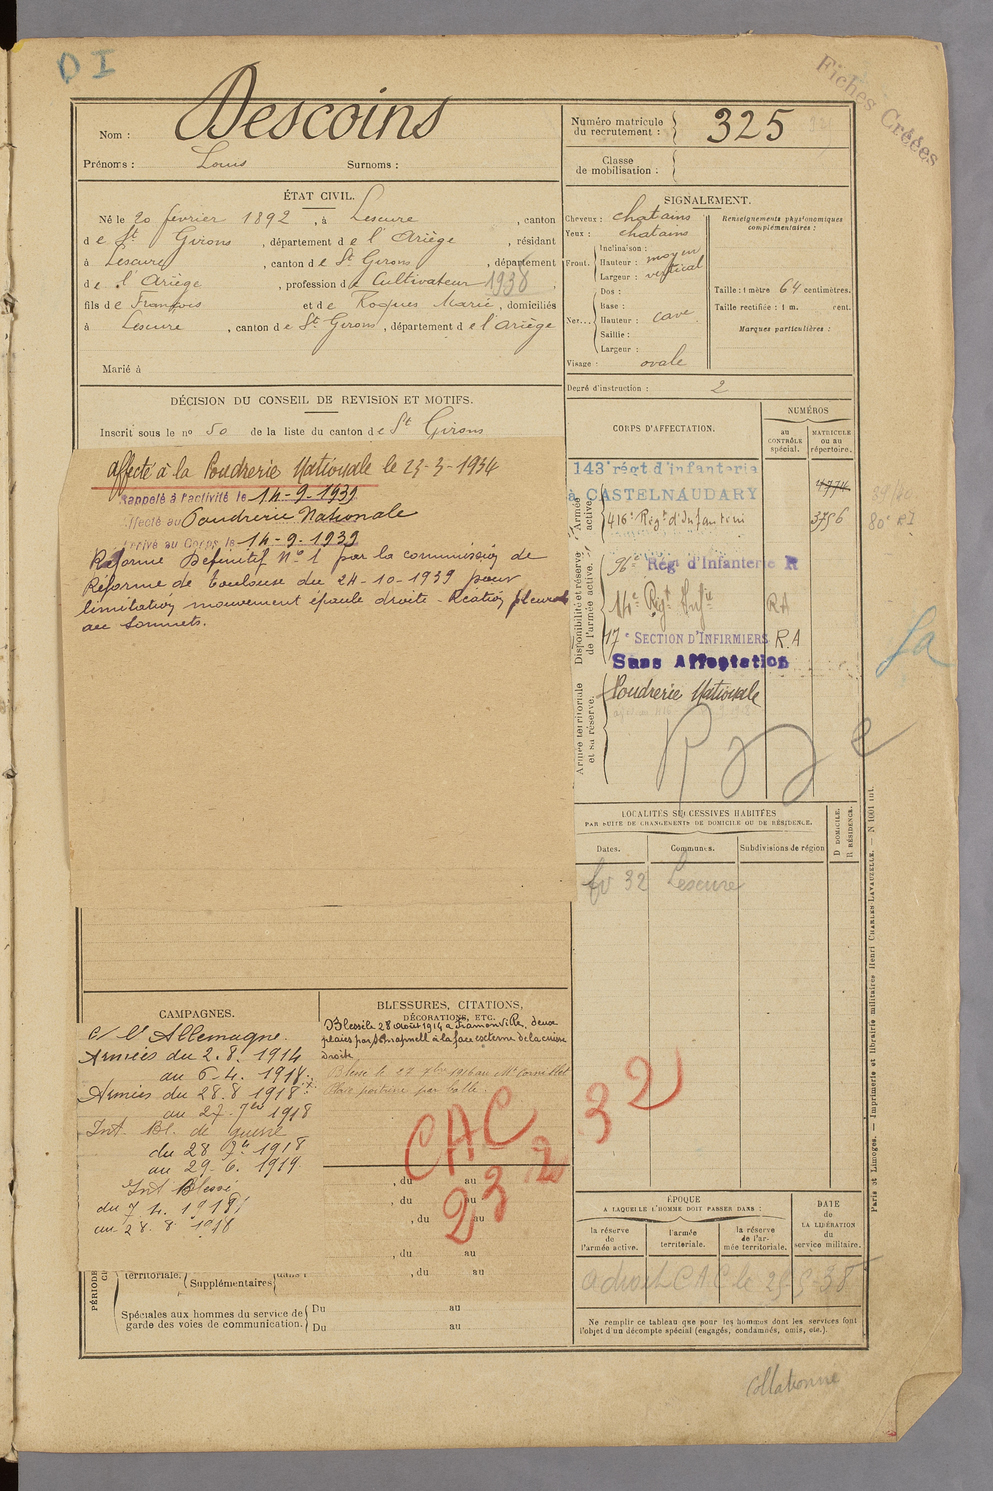 D I
Fiches Créées
Nom : Descoins
Prénoms : Louis Surnoms :
Numéro matricule du recrutement : 325
Classe de mobilisation :
ÉTAT CIVIL.
Né le 20 février 1892, à Lescure, canton
de St Girons, département de l'Ariège, résidant
à Lescure, canton de St Girons, département
de l'Ariège, profession de Cultivateur 1938,
fils de François et de Roques Marie, domiciliés
à Lescure, canton de St Girons, département de l'Ariège
Marié à
SIGNALEMENT.
Cheveux : chatains
Yeux : chatains
Front.
Inclinaison :
Hauteur : moyen
Largeur : vertical
Nez...
Dos :
Base :
Hauteur : cave
Saillie :
Largeur :
Visage : ovale
Renseignements physionomiques complémentaires :
Taille : 1 mètre 64 centimètres.
Taille rectifiée : 1 m. cent.
Marques particulières :
Degré d'instruction : 2
DÉCISION DU CONSEIL DE REVISION ET MOTIFS.
Inscrit sous le no 50 de la liste du canton de St Girons
affecté à la Poudrerie Nationale le 23-3-1934
Rappelé à l'activité le 14-9-1939
Affecté au Poudrerie Nationale
Arrivé au Corps le 14-9-1939
Réforme Définitif No 1 par la commission de
Réforme de Toulouse du 24-10-1939 pour
limitation mouvement épaule droite - Réaction pleurale
aux sommets.
CORPS D'AFFECTATION.
NUMÉROS
au CONTRÔLE spécial.
MATRICULE ou au répertoire.
Armée active.
143e régt d'infanterie
à CASTELNAUDARY 4774
416e Régt d'Infanterie 3756
80e RI
Disponibilité et réserve de l'armée active.
96e Régt d'Infanterie R
14e Régt Infie RA
17e SECTION D'INFIRMIERS R.A
Sans Affectation
Armée territoriale et sa réserve.
Poudrerie Nationale
LOCALITÉS SUCCESSIVES HABITÉES
PAR SUITE DE CHANGEMENTS DE DOMICILE OU DE RÉSIDENCE.
Dates. Communes. Subdivisions de région
D DOMICILE.
R RÉSIDENCE.
fv 32 Lescure
CAMPAGNES.
c/ l'Allemagne.
Armées du 2.8.1914
au 6.4.1918
Armées du 28.8.1918
au 27.7bre 1918
Int. Bl. de guerre
du 28 7bre 1918
au 29-6.1919.
Int Blessé
du 7.4.1918
au 28.8.1918
BLESSURES, CITATIONS,
DÉCORATIONS, ETC.
Blessé le 28 Août 1914 à Framonville, deux
plaies par Schrapnell à la face externe de la cuisse
droite
Blessé le 27 7bre 1916 au Mt Cornillet
Plaie poitrine par balle.
CAC
23 2
32
, du au
, du au
, du au
, du au
territoriale. Supplémentaires dans , du au
Spéciales aux hommes du service de garde des voies de communication. Du au
Du au
ÉPOQUE
A LAQUELLE L'HOMME DOIT PASSER DANS :
la réserve de l'armée active.
l'armée territoriale.
la réserve de l'armée territoriale.
DATE de LA LIBÉRATION du service militaire.
a droit CAC le 25-5-38
Ne remplir ce tableau que pour les hommes dont les services font
l'objet d'un décompte spécial (engagés, condamnés, omis, etc.).
Paris et Limoges. — Imprimerie et librairie militaires Henri CHARLES-LAVAUZELLE. — N 1001 int.
Collationné